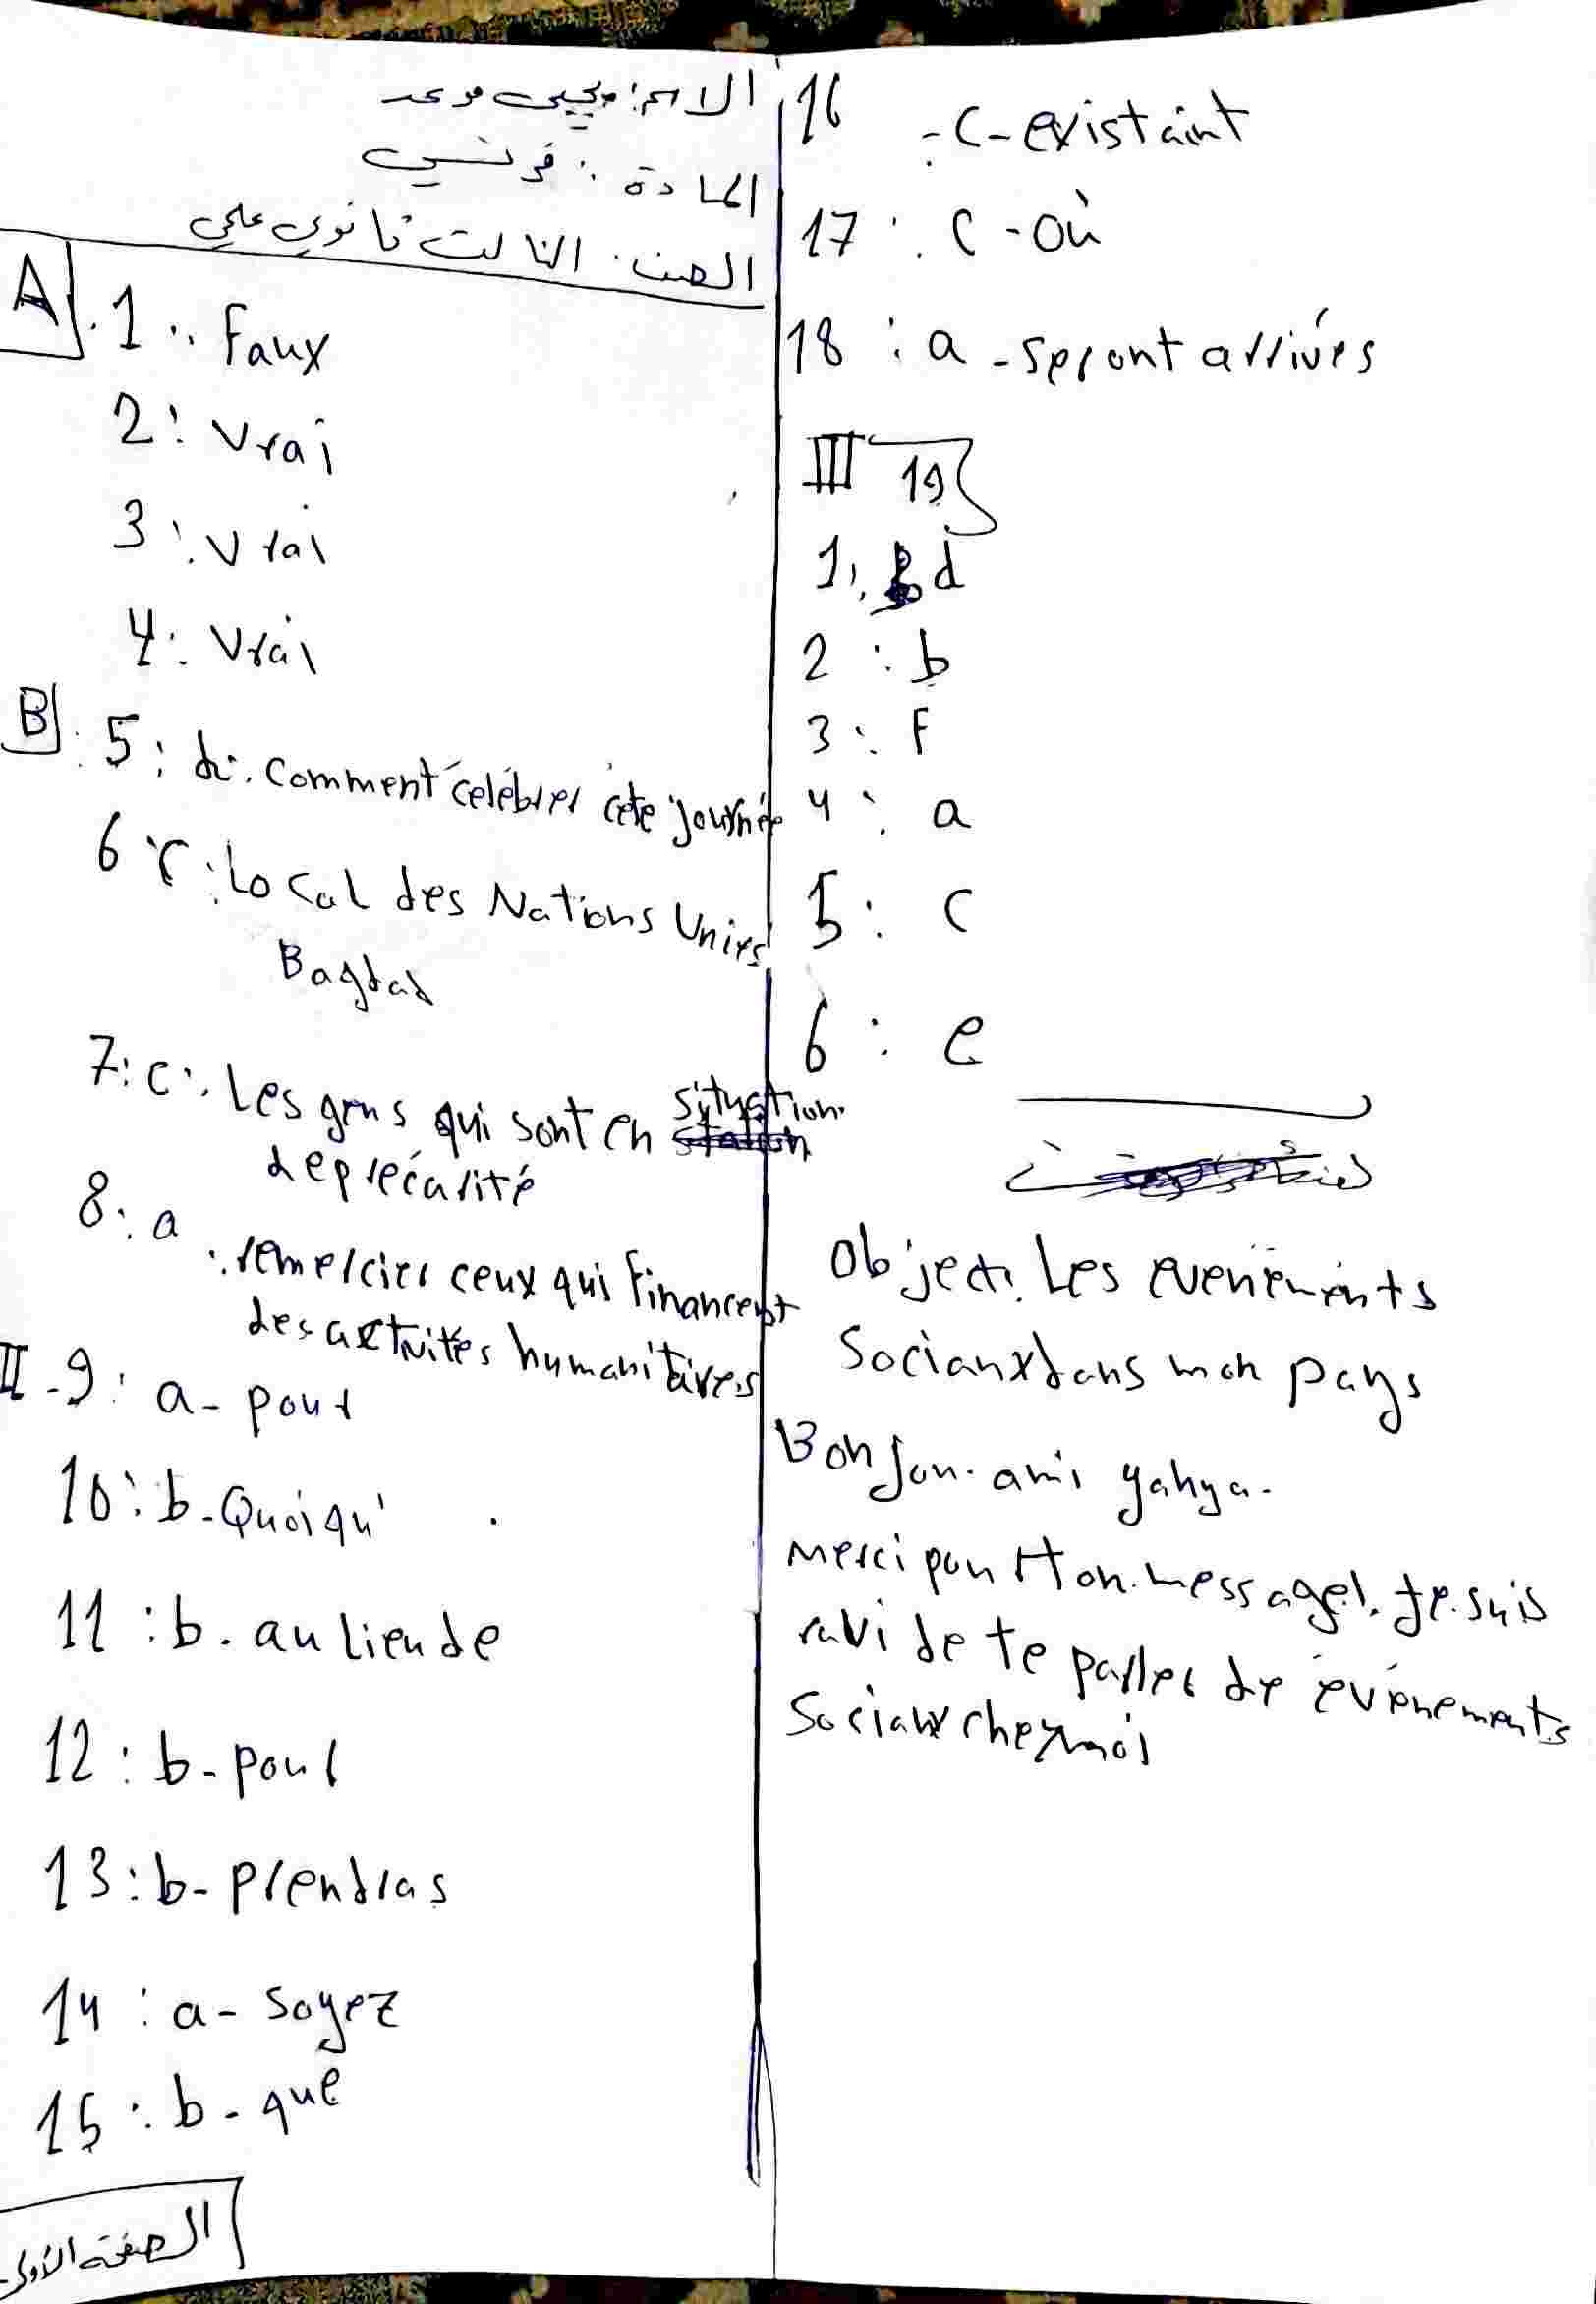 الاسم: يحيى موعد
المادة: فرنسي
الصف: الثالث ثانوي علمي
A
1: Faux
2: Vrai
3: Vrai
4: Vrai
B
5: d: Comment célébrer cete journée
6: c: Local des Nations Unies
Bagdad
7: c: Les gens qui sont en situation
de précarité
8: a
: remercier ceux qui financent
des activités humanitaires
II - 9: a- pour
10: b- Quoiqu'
11: b- au lieu de
12: b- pour
13: b- prendras
14: a- soyez
15: b- que
الصفحة الأولى
16 - c- existaint
17: c- où
18: a- seront arrivés
III 19
1: d
2: b
3: F
4: a
5: c
6: e
Object: Les evenements
Sociaux dans mon pays
Bonjou. ami yahya.
merci pou ton message!. Je suis
ravi de te parler de événements
Sociaux chez moi